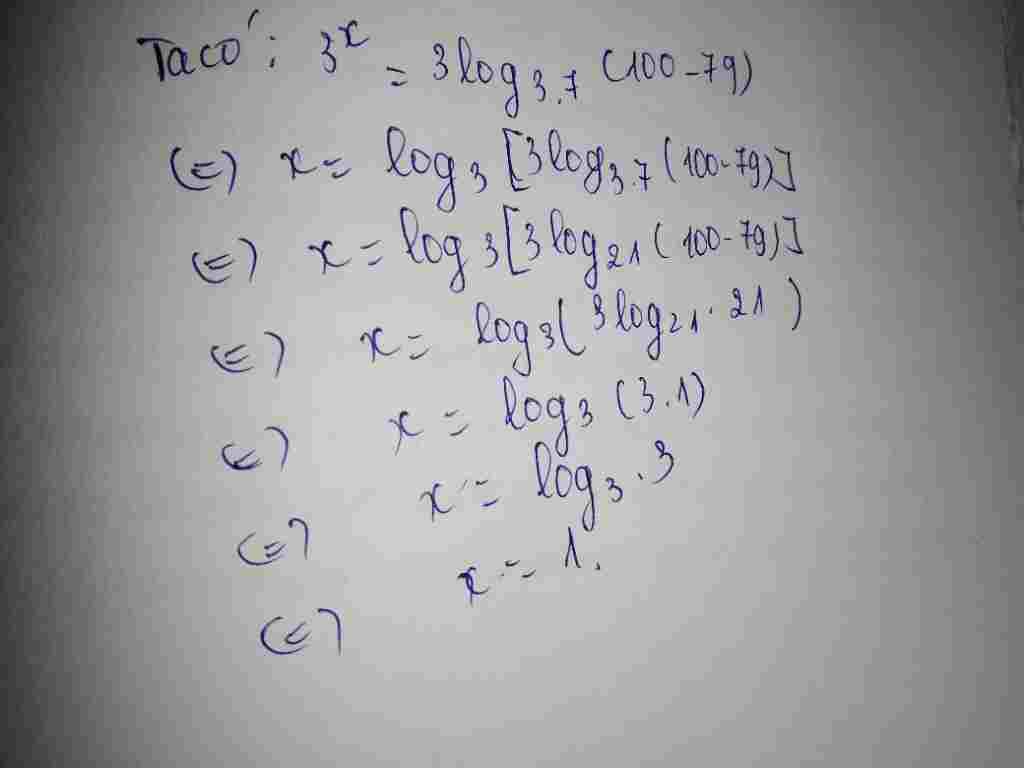 Ta có: 3^x = 3log_{3.7} (100-79)
(=) x = log_3 [3log_{3.7} (100-79)]
(=) x = log_3 [3log_{21} (100-79)]
(=) x = log_3 (3log_{21} . 21)
(=) x = log_3 (3.1)
(=) x = log_3 . 3
(=) x = 1.